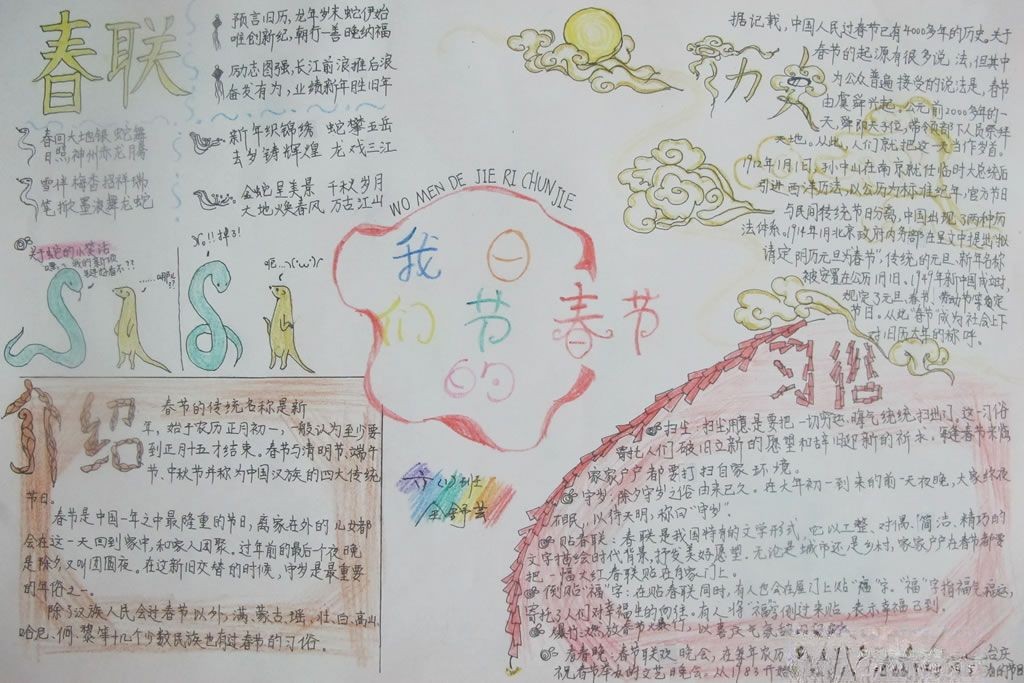 春联
预言旧历,龙年岁末蛇伊始
唯创新纪,朝行一善晚纳福
励志图强,长江前浪推后浪
奋发有为,业绩新年胜旧年
春回大地银蛇舞
日照神州赤龙腾
新年织锦绣 蛇攀五岳
去岁铸辉煌 龙戏三江
雪伴梅香招祥瑞
笔撒墨浪舞龙蛇
金蛇呈美景 千秋岁月
大地焕春风 万古江山
关于蛇的小笑话
No!!掉了!
WO MEN DE JIE RI CHUN JIE
我们的节日
春节
六(1)班
介绍
春节的传统名称是新
年,始于农历正月初一,一般认为至少要
到正月十五才结束。春节与清明节、端午
节、中秋节并称为中国汉族的四大传统
节日。
春节是中国一年之中最隆重的节日,离家在外的儿女都
会在这一天回到家中,和家人团聚。过年前的最后个夜晚
是除夕,又叫团圆夜。在这新旧交替的时候,守岁是最重要
的年俗一。
除了汉族人民会过春节以外,满、蒙古、瑶、壮、白、高山
哈尼、侗、黎等十几个少数民族也有过春节的习俗。
据记载,中国人民过春节已有4000多年的历史。关于
春节的起源有很多说法,但其中
为公众普遍接受的说法是,春节
由虞舜兴起。公元前2000多年的一
天,舜即天子位,带领部下人员祭拜
天地。从此,人们就把这一天当作岁首。
1912年1月1日,孙中山在南京就任临时大总统后
引进西洋历法,以公历为标准纪年,官方节日
与民间传统节日分离,中国出现了两种历
法体系。1914年1月北京政府内务部在呈文中提出:拟
请定阴历元旦为春节,传统的元旦、新年名称
被安置在公历1月1日。1949年新中国成立时,
规定了元旦、春节、劳动节等鉴定
节日。从此"春节"成为社会上下
对旧历大年的称呼。
习俗
扫尘:扫尘用意是要把一切穷运、晦气统统扫出门。这一习俗
寄托人们破旧立新的愿望和辞旧迎新的祈求。每逢春节来临
家家户户都要打扫自家环境。
守岁:除夕守岁之俗由来已久。在大年初一到来的前一天夜晚,大家终夜
不眠,以待天明,称曰"守岁"。
贴春联:春联是我国特有的文学形式,它以工整、对偶、简洁、精巧的
文字描绘时代背景,抒发美好愿望。无论是城市还是乡村,家家户户在春节都要
把一幅大红春联贴在自家门上。
倒贴"福"字:在贴春联同时,有人也会在屋门上贴"福"字。"福"字指福气福运,
寄托了人们对幸福生的向往。有人将"福"字倒过来贴,表示幸福已到。
爆竹:燃放
看春晚:春节联欢晚会,在每年农历
祝春节举办的文艺晚会。从1983开始